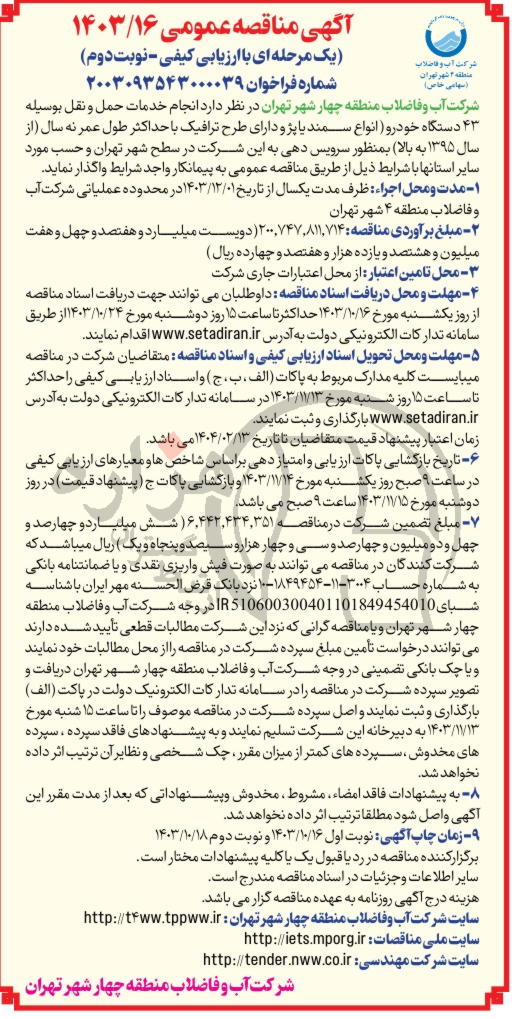 آگهی مناقصه عمومی ۱۴۰۳/۱۶
(یک مرحله ای با ارزیابی کیفی - نوبت دوم)
شماره فراخوان ۲۰۰۳۰۹۳۵۴۳۰۰۰۰۳۹
شرکت آب و فاضلاب
منطقه ۴ شهر تهران
(سهامی خاص)
شرکت آب و فاضلاب منطقه چهار شهر تهران در نظر دارد انجام خدمات حمل و نقل بوسیله
۴۳ دستگاه خودرو (انواع سمند یا پژو و دارای طرح ترافیک با حداکثر طول عمر نه سال (از
سال ۱۳۹۵ به بالا) بمنظور سرویس دهی به این شرکت در سطح شهر تهران و حسب مورد
سایر استانها با شرایط ذیل از طریق مناقصه عمومی به پیمانکار واجد شرایط واگذار نماید.
۱- مدت و محل اجراء: ظرف مدت یکسال از تاریخ ۱۴۰۳/۱۲/۰۱ در محدوده عملیاتی شرکت آب
و فاضلاب منطقه ۴ شهر تهران
۲- مبلغ برآوردی مناقصه: ۲۰۰,۷۴۷,۸۱۱,۷۱۴ (دویست میلیارد و هفتصد و چهل و هفت
میلیون و هشتصد و یازده هزار و هفتصد و چهارده ریال)
۳- محل تامین اعتبار: از محل اعتبارات جاری شرکت
۴- مهلت و محل دریافت اسناد مناقصه: داوطلبان می توانند جهت دریافت اسناد مناقصه
از روز یکشنبه مورخ ۱۴۰۳/۱۰/۱۶ حداکثر تا ساعت ۱۵ روز دوشنبه مورخ ۱۴۰۳/۱۰/۲۴ از طریق
سامانه تدارکات الکترونیکی دولت به آدرس www.setadiran.ir اقدام نمایند.
۵- مهلت ومحل تحویل اسناد ارزیابی کیفی و اسناد مناقصه: متقاضیان شرکت در مناقصه
میبایست کلیه مدارک مربوط به پاکات (الف ، ب ، ج) و اسناد ارزیابی کیفی را حداکثر
تا ساعت ۱۵ روز شنبه مورخ ۱۴۰۳/۱۱/۱۳ در سامانه تدارکات الکترونیکی دولت به آدرس
www.setadiran.ir بارگذاری و ثبت نمایند.
زمان اعتبار پیشنهاد قیمت متقاضیان تا تاریخ ۱۴۰۴/۰۲/۱۳ می باشد.
۶- تاریخ بازگشایی پاکات ارزیابی و امتیاز دهی براساس شاخص ها و معیارهای ارزیابی کیفی
در ساعت ۹ صبح روز یکشنبه مورخ ۱۴۰۳/۱۱/۱۴ و بازگشایی پاکات ج (پیشنهاد قیمت) در روز
دوشنبه مورخ ۱۴۰۳/۱۱/۱۵ ساعت ۹ صبح می باشد.
۷- مبلغ تضمین شرکت در مناقصه ۶,۴۴۲,۴۳۴,۳۵۱ (شش میلیارد و چهارصد و
چهل و دو میلیون و چهارصد و سی و چهار هزار و سیصد و پنجاه و یک) ریال میباشد که
شرکت کنندگان در مناقصه می توانند به صورت فیش واریزی نقدی و یا ضمانتنامه بانکی
به شماره حساب ۳۰۰۴-۱۱-۱۸۴۹۴۵۴-۱۰ نزد بانک قرض الحسنه مهر ایران با شناسه
شبای IR510600300401101849454010 در وجه شرکت آب و فاضلاب منطقه
چهار شهر تهران و یا مناقصه گرانی که نزد این شرکت مطالبات قطعی تأیید شده دارند
می توانند درخواست تأمین مبلغ سپرده شرکت در مناقصه را از محل مطالبات خود نمایند
و یا چک بانکی تضمینی در وجه شرکت آب و فاضلاب منطقه چهار شهر تهران دریافت و
تصویر سپرده شرکت در مناقصه را در سامانه تدارکات الکترونیک دولت در پاکت (الف)
بارگذاری و ثبت نمایند و اصل سپرده شرکت در مناقصه موصوف را تا ساعت ۱۵ شنبه مورخ
۱۴۰۳/۱۱/۱۳ به دبیرخانه این شرکت تسلیم نمایند و به پیشنهادهای فاقد سپرده ، سپرده
های مخدوش ، سپرده های کمتر از میزان مقرر ، چک شخصی و نظایر آن ترتیب اثر داده
نخواهد شد.
۸- به پیشنهادات فاقد امضاء ، مشروط ، مخدوش و پیشنهاداتی که بعد از مدت مقرر این
آگهی واصل شود مطلقا ترتیب اثر داده نخواهد شد.
۹- زمان چاپ آگهی: نوبت اول ۱۴۰۳/۱۰/۱۶ و نوبت دوم ۱۴۰۳/۱۰/۱۸
برگزارکننده مناقصه در رد یا قبول یک یا کلیه پیشنهادات مختار است.
سایر اطلاعات و جزئیات در اسناد مناقصه مندرج است.
هزینه درج آگهی روزنامه به عهده مناقصه گزار می باشد.
سایت شرکت آب و فاضلاب منطقه چهار شهر تهران : http://t4ww.tppww.ir
سایت ملی مناقصات: http://iets.mporg.ir
سایت شرکت مهندسی: http://tender.nww.co.ir
شرکت آب و فاضلاب منطقه چهار شهر تهران